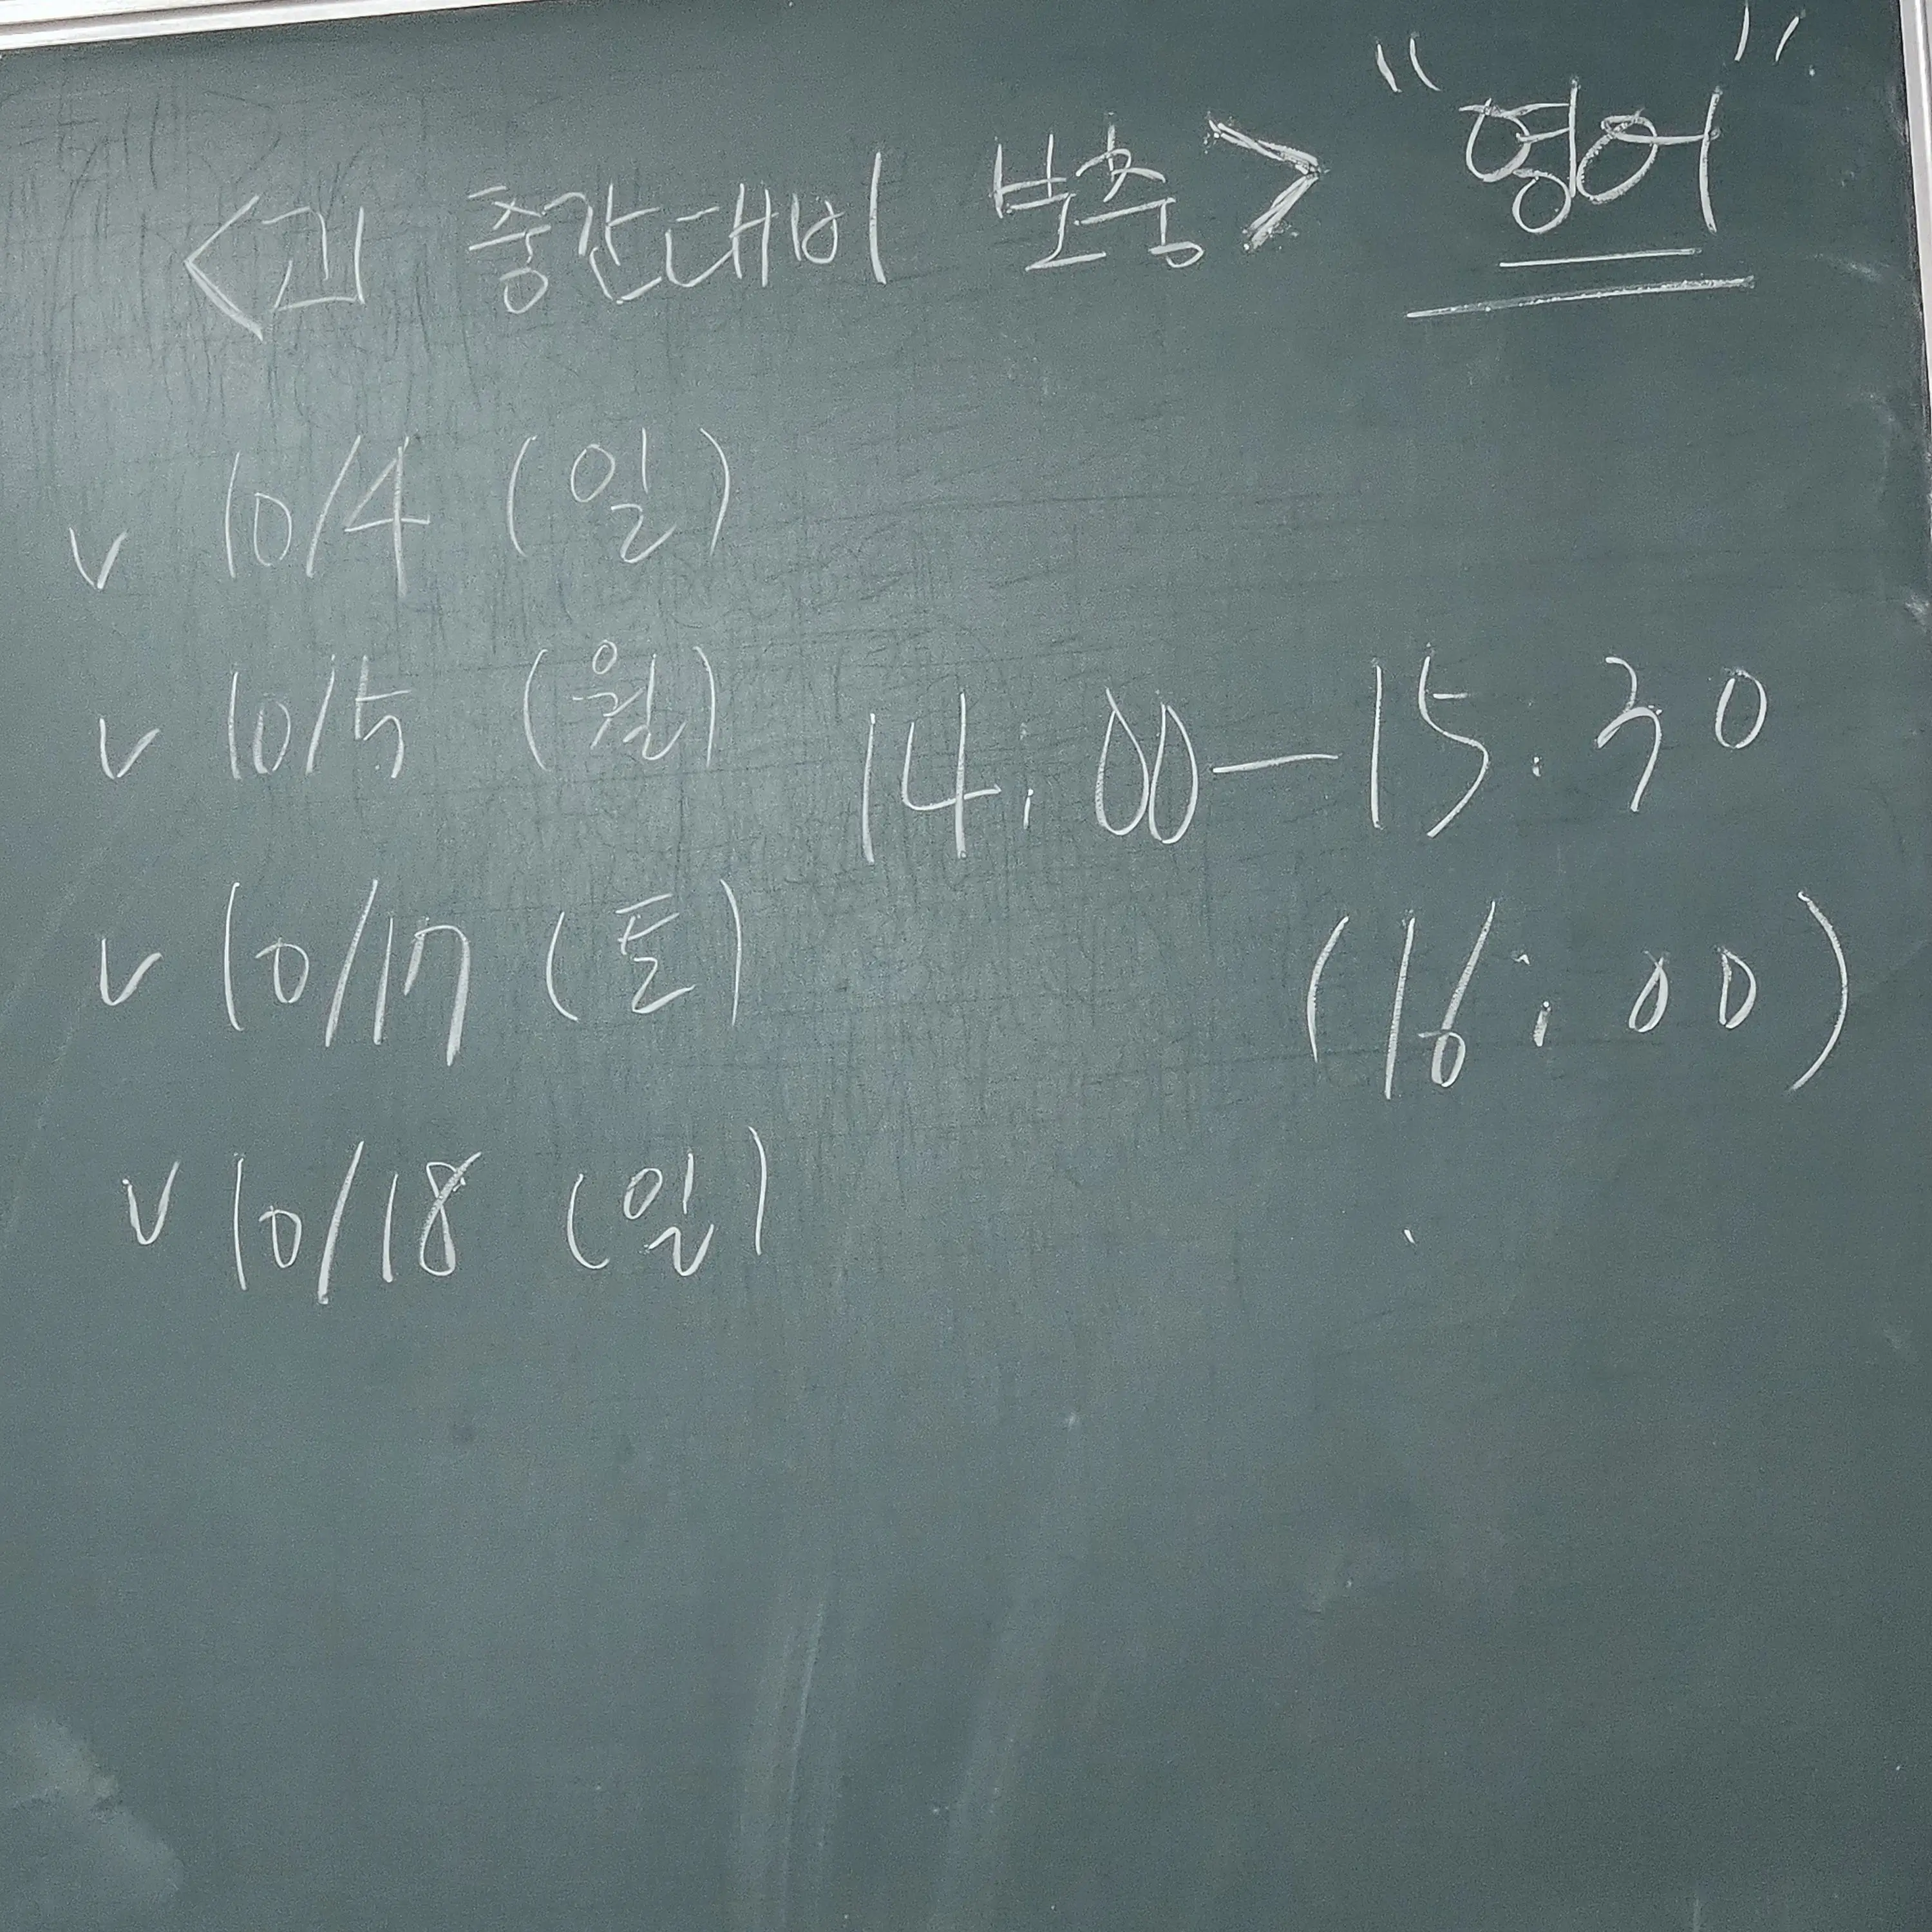 <고1 중간대비 보충> "영어"
v 10/4 (일)
v 10/5 (월) 14:00-15:30
v 10/17 (토) (16:00)
v 10/18 (일)